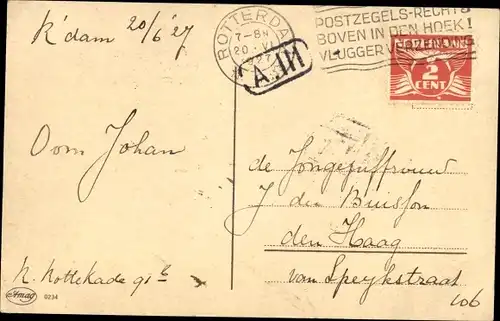 R'dam 20/6 '27
ROTTERDAM
7-8N
20.VI
POSTZEGELS-RECHTS
BOVEN IN DEN HOEK!
VLUGGER VERZENDING
NEDERLAND
2
CENT
A.IN
Oom Johan
de Jongejuffrouw
J den Buisson
den Haag
van Speykstraat
106
N. Nottekade 91 b
Amag
0234